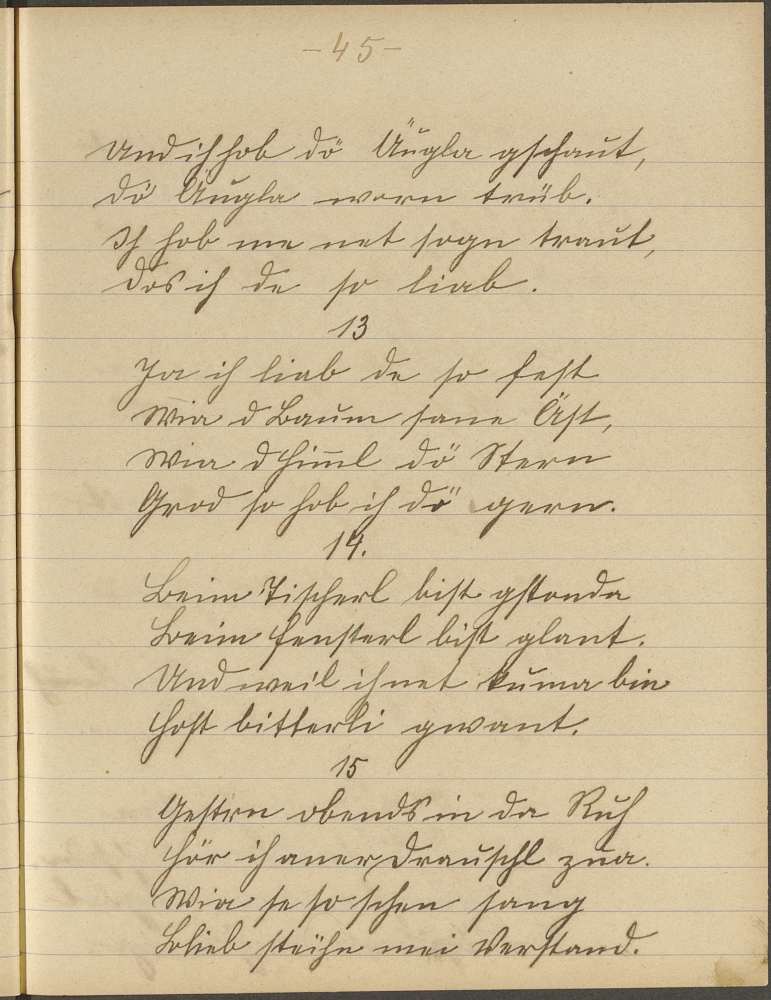 - 45 -
Und ich hob dö Äugla gschaut,
dö Äugla worn trüb.
Ich hob me net sogn traut,
dos ich de so liab.
13
Ja ich liab de so fest
Wia d Baum sane Äst,
Wia d Himl dö Stern
Grod so hob ich dö gern.
14.
Beim Tischerl bist gstonda
Beim Fensterl bist glant.
Und weil ich net kuma bin
Host bitterli gwant.
15
Gestrn obends in da Ruh
Hör ich aner Drauschl zua.
Wia se so schen sang
Blieb steihn mei Verstand.